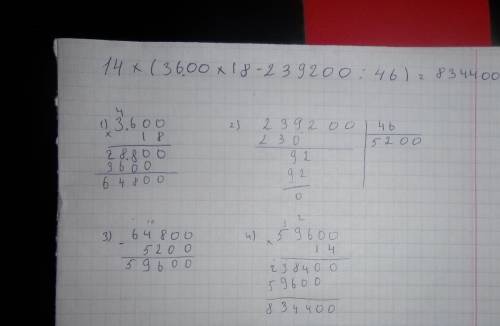 14 × (3600 × 18 - 239200 : 46) = 834400
1) 3600
× 18
28800
3600
64800
2) 239200 46
230 5200
92
92
0
3) - 64800
5200
59600
4) 59600
× 14
238400
59600
834400